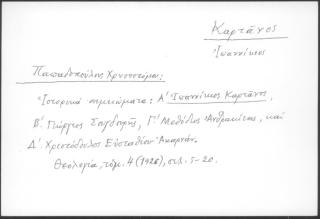 Καρτᾶνος
Ἰωαννίκιος
Παπαδόπουλος Χρυσόστομος:
Ἱστορικὰ σημειώματα: Α' Ἰωαννίκιος Καρτάνος,
Β' Γεώργιος Σουγδουρῆς, Γ' Μεθόδιος Ἀνθρακίτης, καὶ
Δ' Χριστόδουλος Εὐσταθίου Ἀκαρνάν.
Θεολογία, τόμ. 4 (1926), σελ. 5-20.